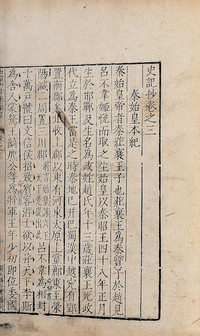 史記抄卷之三
秦始皇本紀
秦始皇帝者秦莊襄王子也莊襄王為秦質子於趙見
呂不韋姬悅而取之生始皇以秦昭王四十八年正月
生於邯鄲及生名為政姓趙氏年十三歲莊襄王死政
代立為秦王當是之時秦地已并巴蜀漢中越宛有郢
置南郡矣北收上郡以東有河東太原上黨郡東至滎
陽滅二周置三川郡 呂不韋為相封
十萬戶號曰文信侯招致賓客游士欲以并天下李斯
為舍人蒙驁王齮麃公等為將軍王年少初即位委國